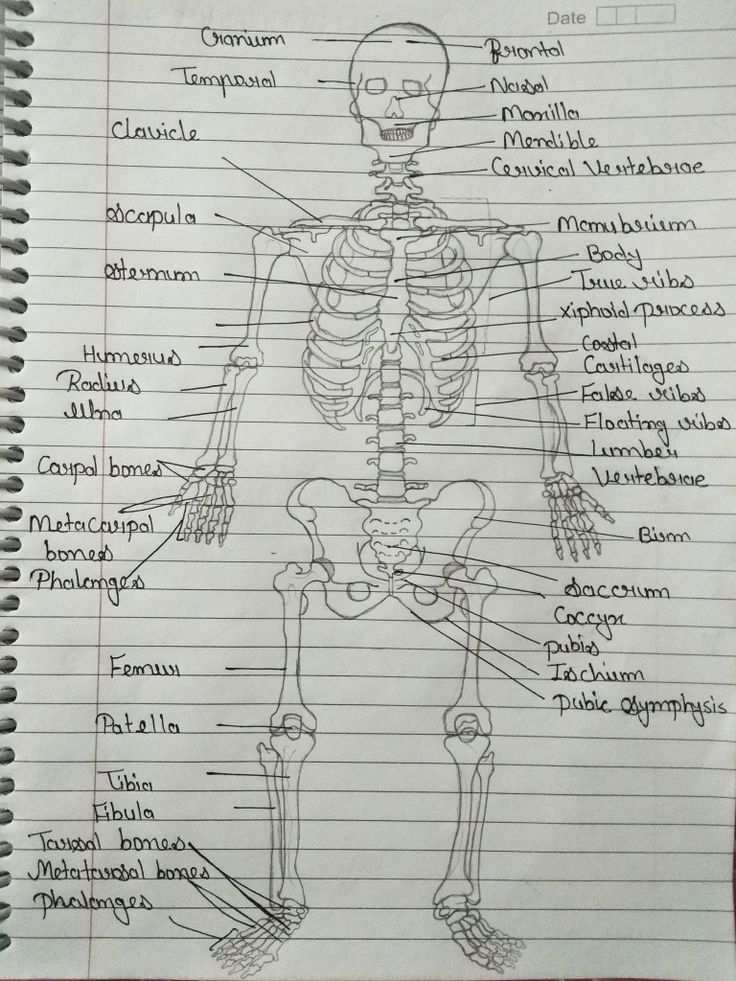 Date
Cranium
Frontal
Temporal
Nasal
Maxilla
Mendible
Clavicle
Cervical Vertebrae
Scapula
Manubrium
Body
Sternum
True ribs
Xiphoid process
Costal
Cartilages
Humerus
Radius
False ribs
Ulna
Floating ribs
Lumber
Vertebrae
Carpal bones
Metacarpal
bones
Phalenges
Saccrum
Coccyx
Pubis
Ischium
Pubic Symphysis
Femur
Patella
Tibia
Fibula
Tarsal bones
Metatarsal bones
Phalenges